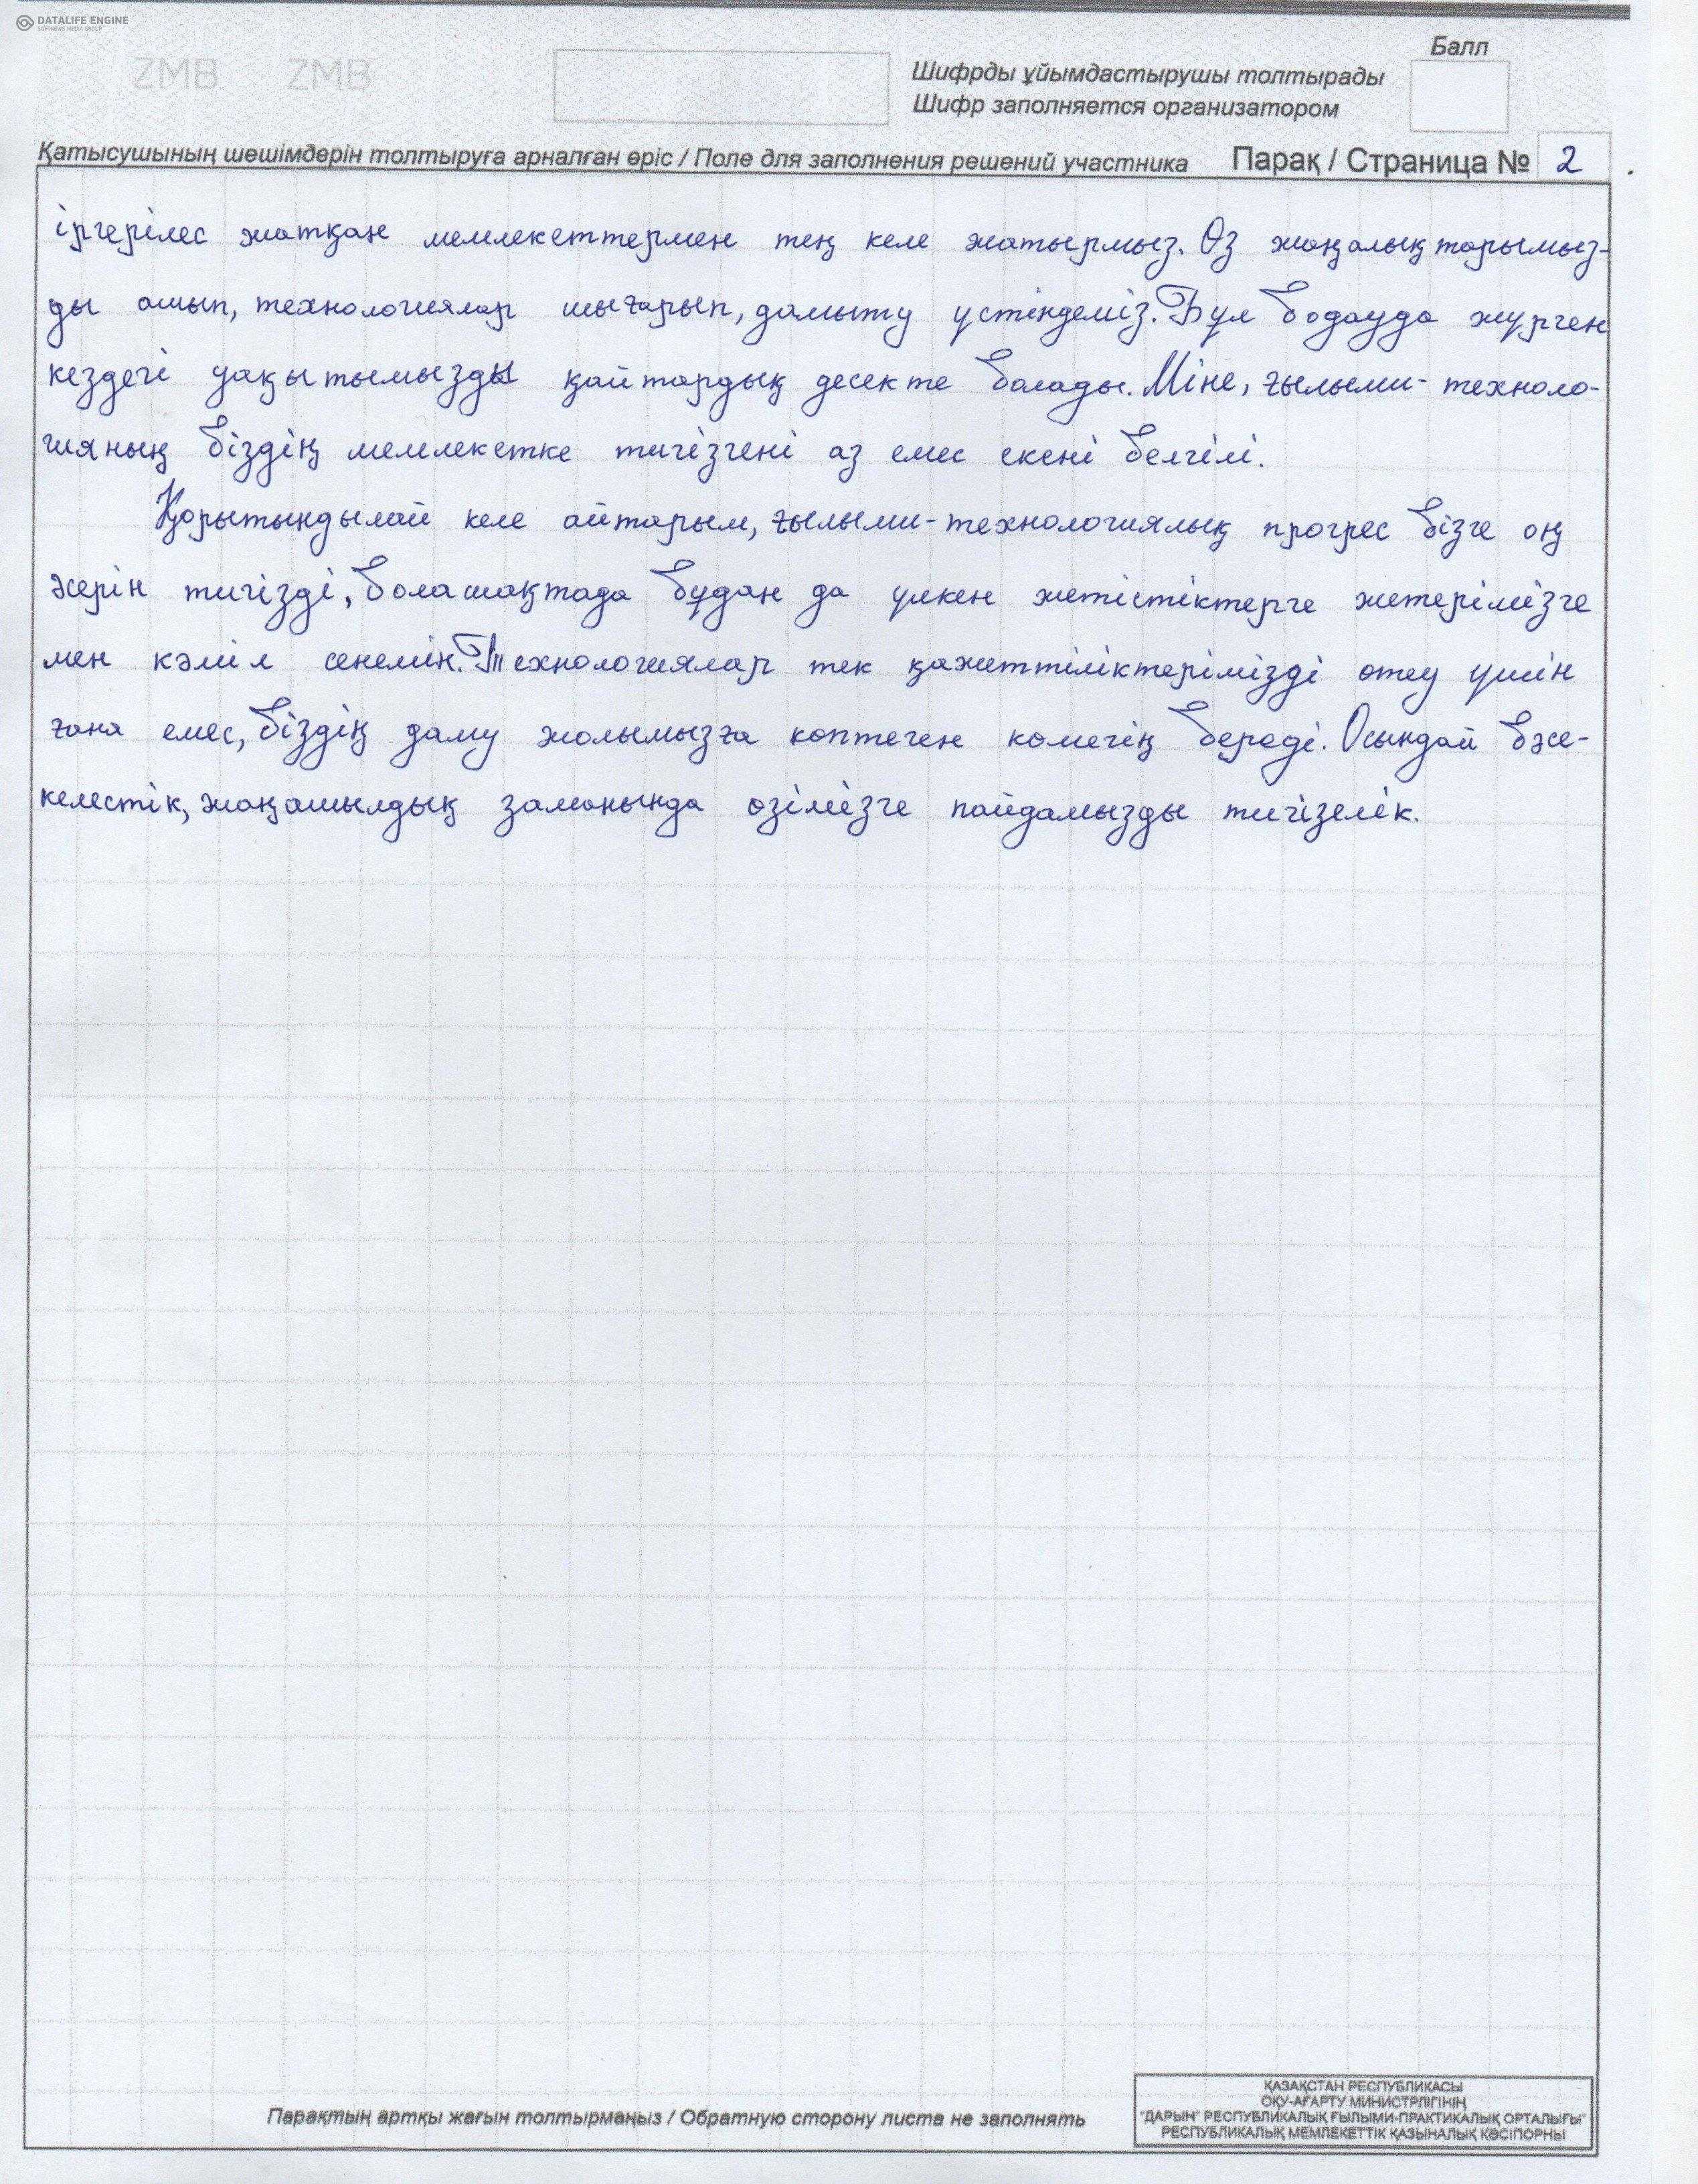 DATALIFE ENGINE
SOFTNEWS MEDIA GROUP
ZMB ZMB
Балл
Шифрды ұйымдастырушы толтырады
Шифр заполняется организатором
Қатысушының шешімдерін толтыруға арналған өріс / Поле для заполнения решений участника Парақ / Страница № 2
іргерілес жатқан мемлекеттермен тең келе жатырмыз. Өз жаңалықтарымыз-
ды ашып, технологиялар шығарып, дамыту үстіндеміз. Бұл бодауда жүрген
кездегі уақытымызды қайтардық десекте болады. Міне, ғылыми-техноло-
гияның біздің мемлекетке тигізгені аз емес екені белгілі.
Қорытындылай келе айтарым, ғылыми-технологиялық прогрес бізге оң
әсерін тигізді, болашақтада бұдан да үлкен жетістіктерге жетерімізге
мен кәміл сенемін. Технологиялар тек қажеттіліктерімізді өтеу үшін
ғана емес, біздің даму жолымызға көптеген көмегің береді. Осындай бәсе-
келестік, жаңашылдық заманында өзімізге пайдамызды тигізелік.
Парақтың артқы жағын толтырмаңыз / Обратную сторону листа не заполнять
ҚАЗАҚСТАН РЕСПУБЛИКАСЫ
ОҚУ-АҒАРТУ МИНИСТРЛІГІНІҢ
"ДАРЫН" РЕСПУБЛИКАЛЫҚ ҒЫЛЫМИ-ПРАКТИКАЛЫҚ ОРТАЛЫҒЫ"
РЕСПУБЛИКАЛЫҚ МЕМЛЕКЕТТІК ҚАЗЫНАЛЫҚ КӘСІПОРНЫ